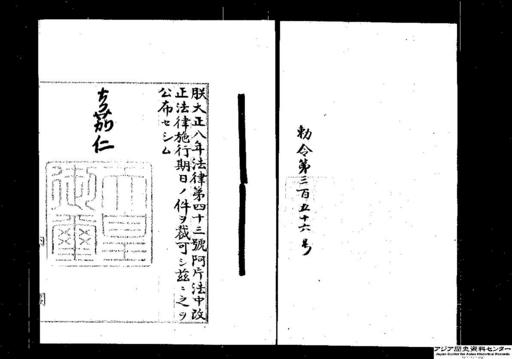 勅令第三百五十六号
朕大正八年法律第四十三號阿片法中改
正法律施行期日ノ件ヲ裁可シ玆ニ之ヲ
公布セシム
嘉仁
天皇御璽
アジア歴史資料センター
Japan Center for Asian Historical Records